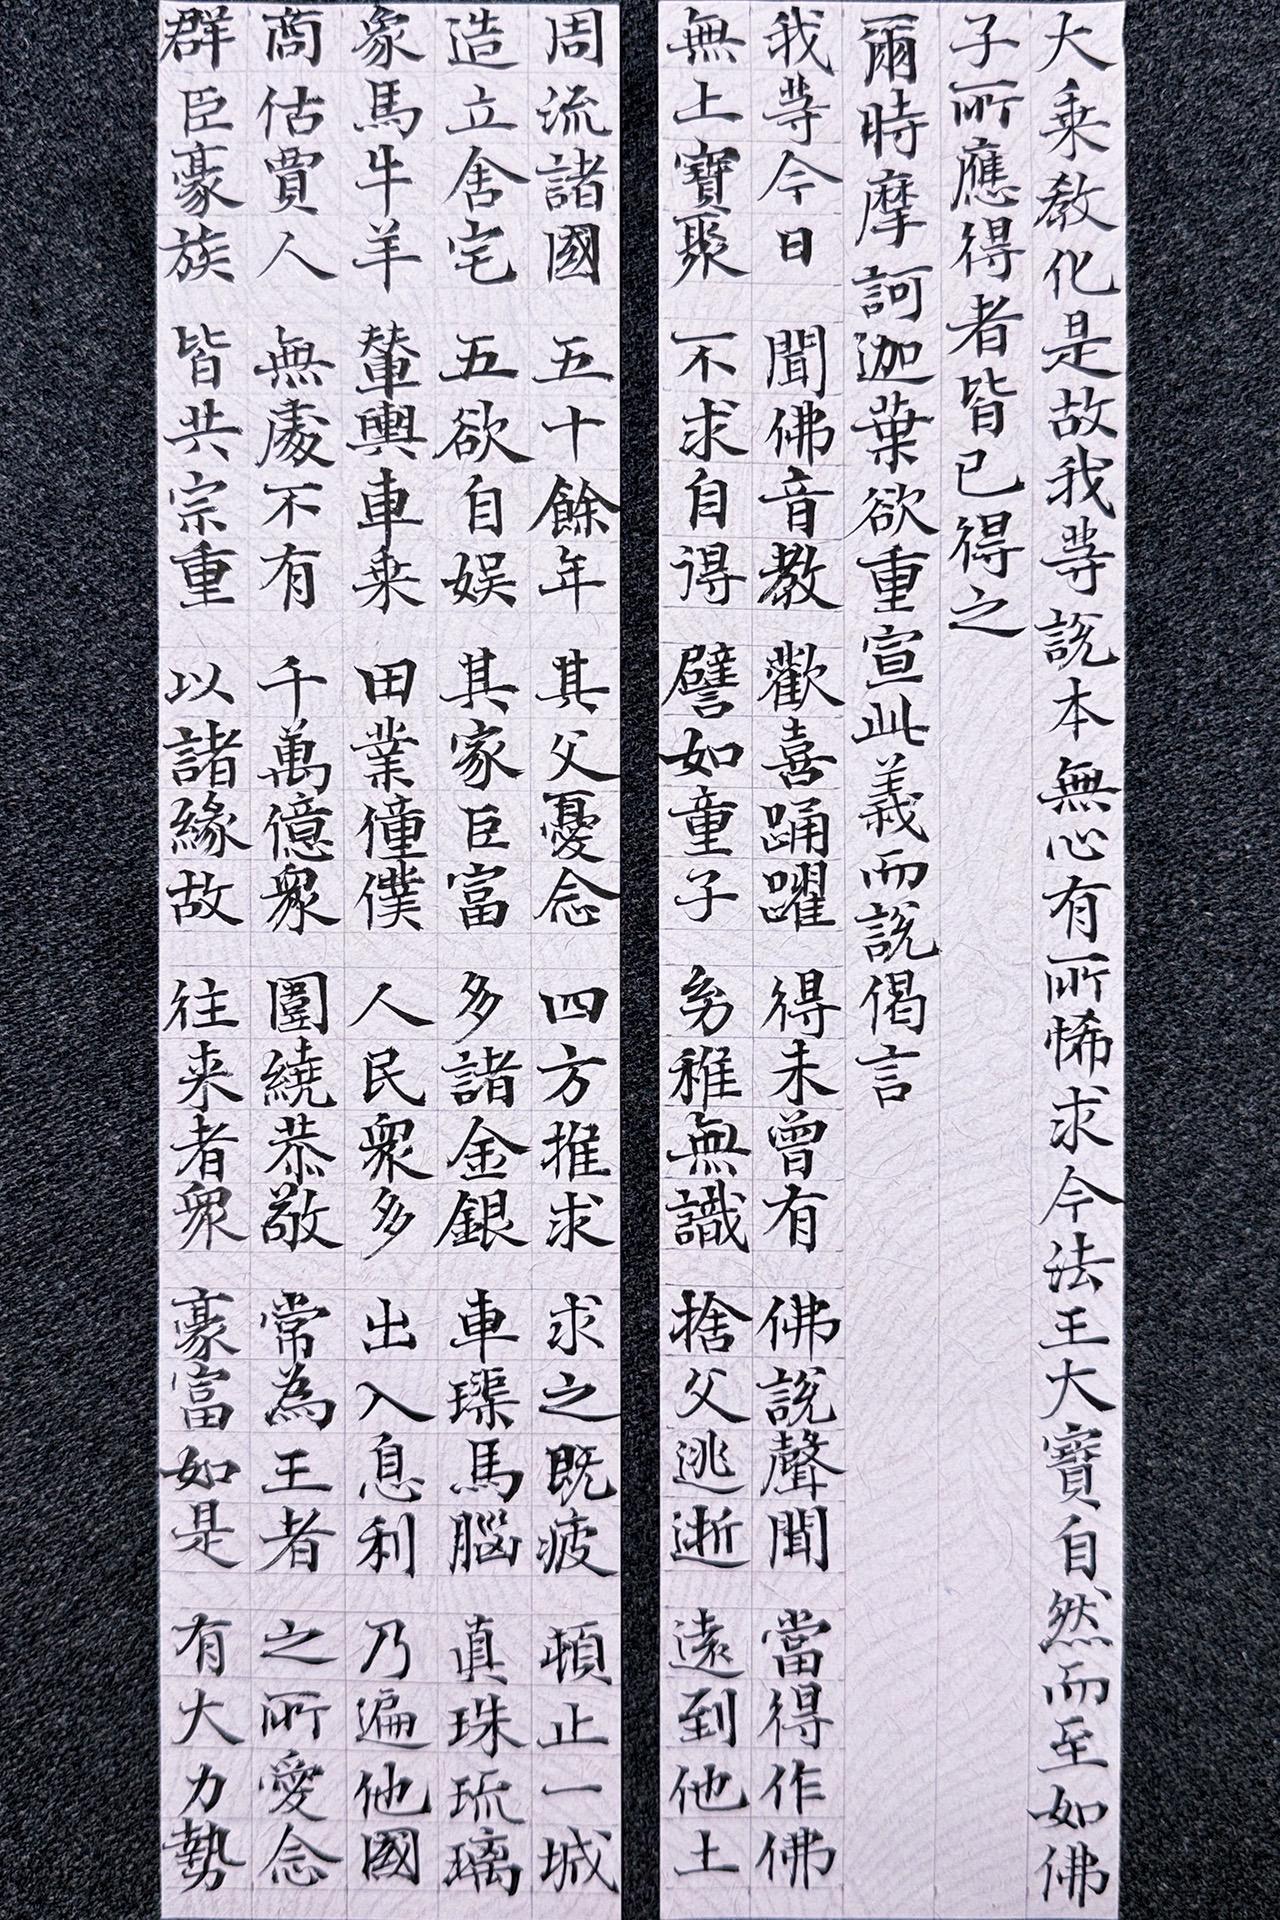 大乗教化是故我等說本無心有所悕求今法王大寶自然而至如佛
子所應得者皆已得之
爾時摩訶迦葉欲重宣此義而說偈言
我等今日 聞佛音教 歡喜踊躍 得未曾有 佛說聲聞 當得作佛
無上寶聚 不求自得 譬如童子 幼稚無識 捨父逃逝 遠到他土
周流諸國 五十餘年 其父憂念 四方推求 求之既疲 頓止一城
造立舍宅 五欲自娛 其家巨富 多諸金銀 車璖馬腦 真珠琉璃
象馬牛羊 輦輿車乗 田業僮僕 人民眾多 出入息利 乃遍他國
商估賈人 無處不有 千萬億眾 圍繞恭敬 常為王者 之所愛念
群臣豪族 皆共宗重 以諸緣故 往来者眾 豪富如是 有大力勢